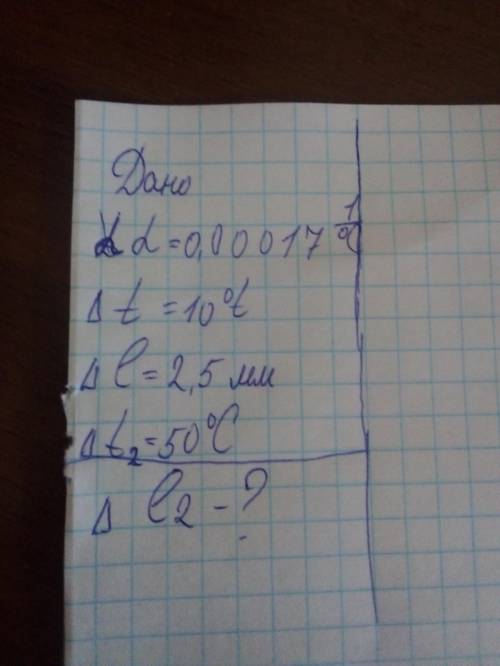 Дано
α = 0,00017 1/°C
Δ t = 10°t
Δ l = 2,5 мм
Δ t₂ = 50°C
Δ l₂ - ?